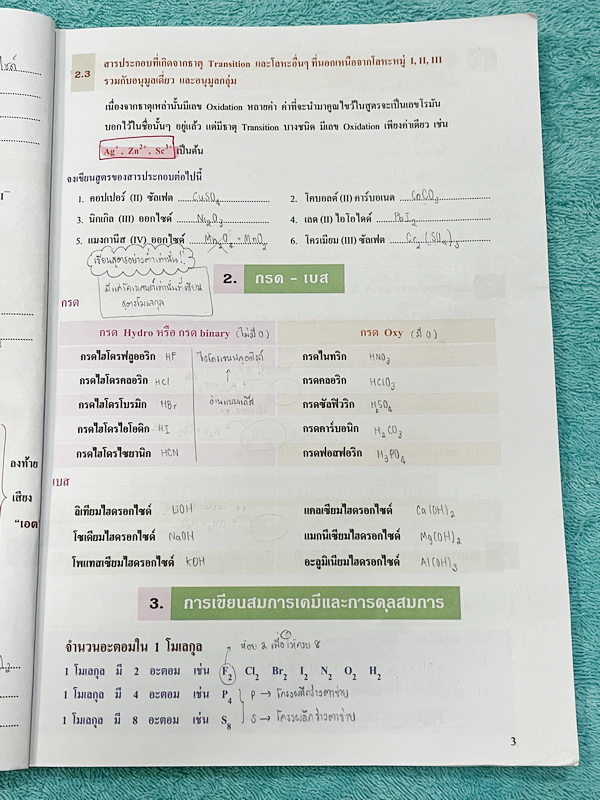 2.3 สารประกอบที่เกิดจากธาตุ Transition และโลหะอื่นๆ ที่นอกเหนือจากโลหะหมู่ I, II, III
รวมกับอนุมูลเดี่ยว และอนุมูลกลุ่ม
เนื่องจากธาตุเหล่านั้นมีเลข Oxidation หลายค่า ค่าที่จะนำมาคูณไขว้ในสูตรจะเป็นเลขโรมัน
บอกไว้ในชื่อนั้นๆ อยู่แล้ว แต่มีธาตุ Transition บางชนิด มีเลข Oxidation เพียงค่าเดียว เช่น
Ag⁺, Zn²⁺, Sc³⁺ เป็นต้น
จงเขียนสูตรของสารประกอบต่อไปนี้
1. คอปเปอร์ (II) ซัลเฟต CuSO₄ 2. โคบอลต์ (II) คาร์บอเนต CoCO₃
3. นิกเกิล (III) ออกไซด์ Ni₂O₃ 4. เลด (II) ไอโอไดด์ PbI₂
5. แมงกานีส (IV) ออกไซด์ Mn₂O₄ = MnO₂ 6. โครเมียม (III) ซัลเฟต Cr₂(SO₄)₃
เขียนสูตรอย่างต่ำเท่านั้น!!
มีแค่โคเวเลนต์เท่านั้นที่เขียน
สูตรโมเลกุล
2. กรด - เบส
กรด
กรด Hydro หรือ กรด binary (ไม่มี O) กรด Oxy (มี O)
กรดไฮโดรฟลูออริก HF ไฮโดรเจนฟลูออไรด์ กรดไนทริก HNO₃
กรดไฮโดรคลอริก HCl ↑ กรดคลอริก HClO₃
กรดไฮโดรโบรมิก HBr อ่านแบบแก๊ส กรดซัลฟิวริก H₂SO₄
กรดไฮโดรไอโอดิก HI กรดคาร์บอนิก H₂CO₃
กรดไฮโดรไซยานิก HCN กรดฟอสฟอริก H₃PO₄
เบส
ลิเทียมไฮดรอกไซด์ LiOH แคลเซียมไฮดรอกไซด์ Ca(OH)₂
โซเดียมไฮดรอกไซด์ NaOH แมกนีเซียมไฮดรอกไซด์ Mg(OH)₂
โพแทสเซียมไฮดรอกไซด์ KOH อะลูมิเนียมไฮดรอกไซด์ Al(OH)₃
3. การเขียนสมการเคมีและการดุลสมการ
จำนวนอะตอมใน 1 โมเลกุล ห้อย 2 เพื่อให้ครบ 8
1 โมเลกุล มี 2 อะตอม เช่น F₂ Cl₂ Br₂ I₂ N₂ O₂ H₂
1 โมเลกุล มี 4 อะตอม เช่น P₄ P → โครงผลึกร่างตาข่าย
1 โมเลกุล มี 8 อะตอม เช่น S₈ S → โครงผลึกร่างตาข่าย
3
ลงท้าย
เสียง
"เอต